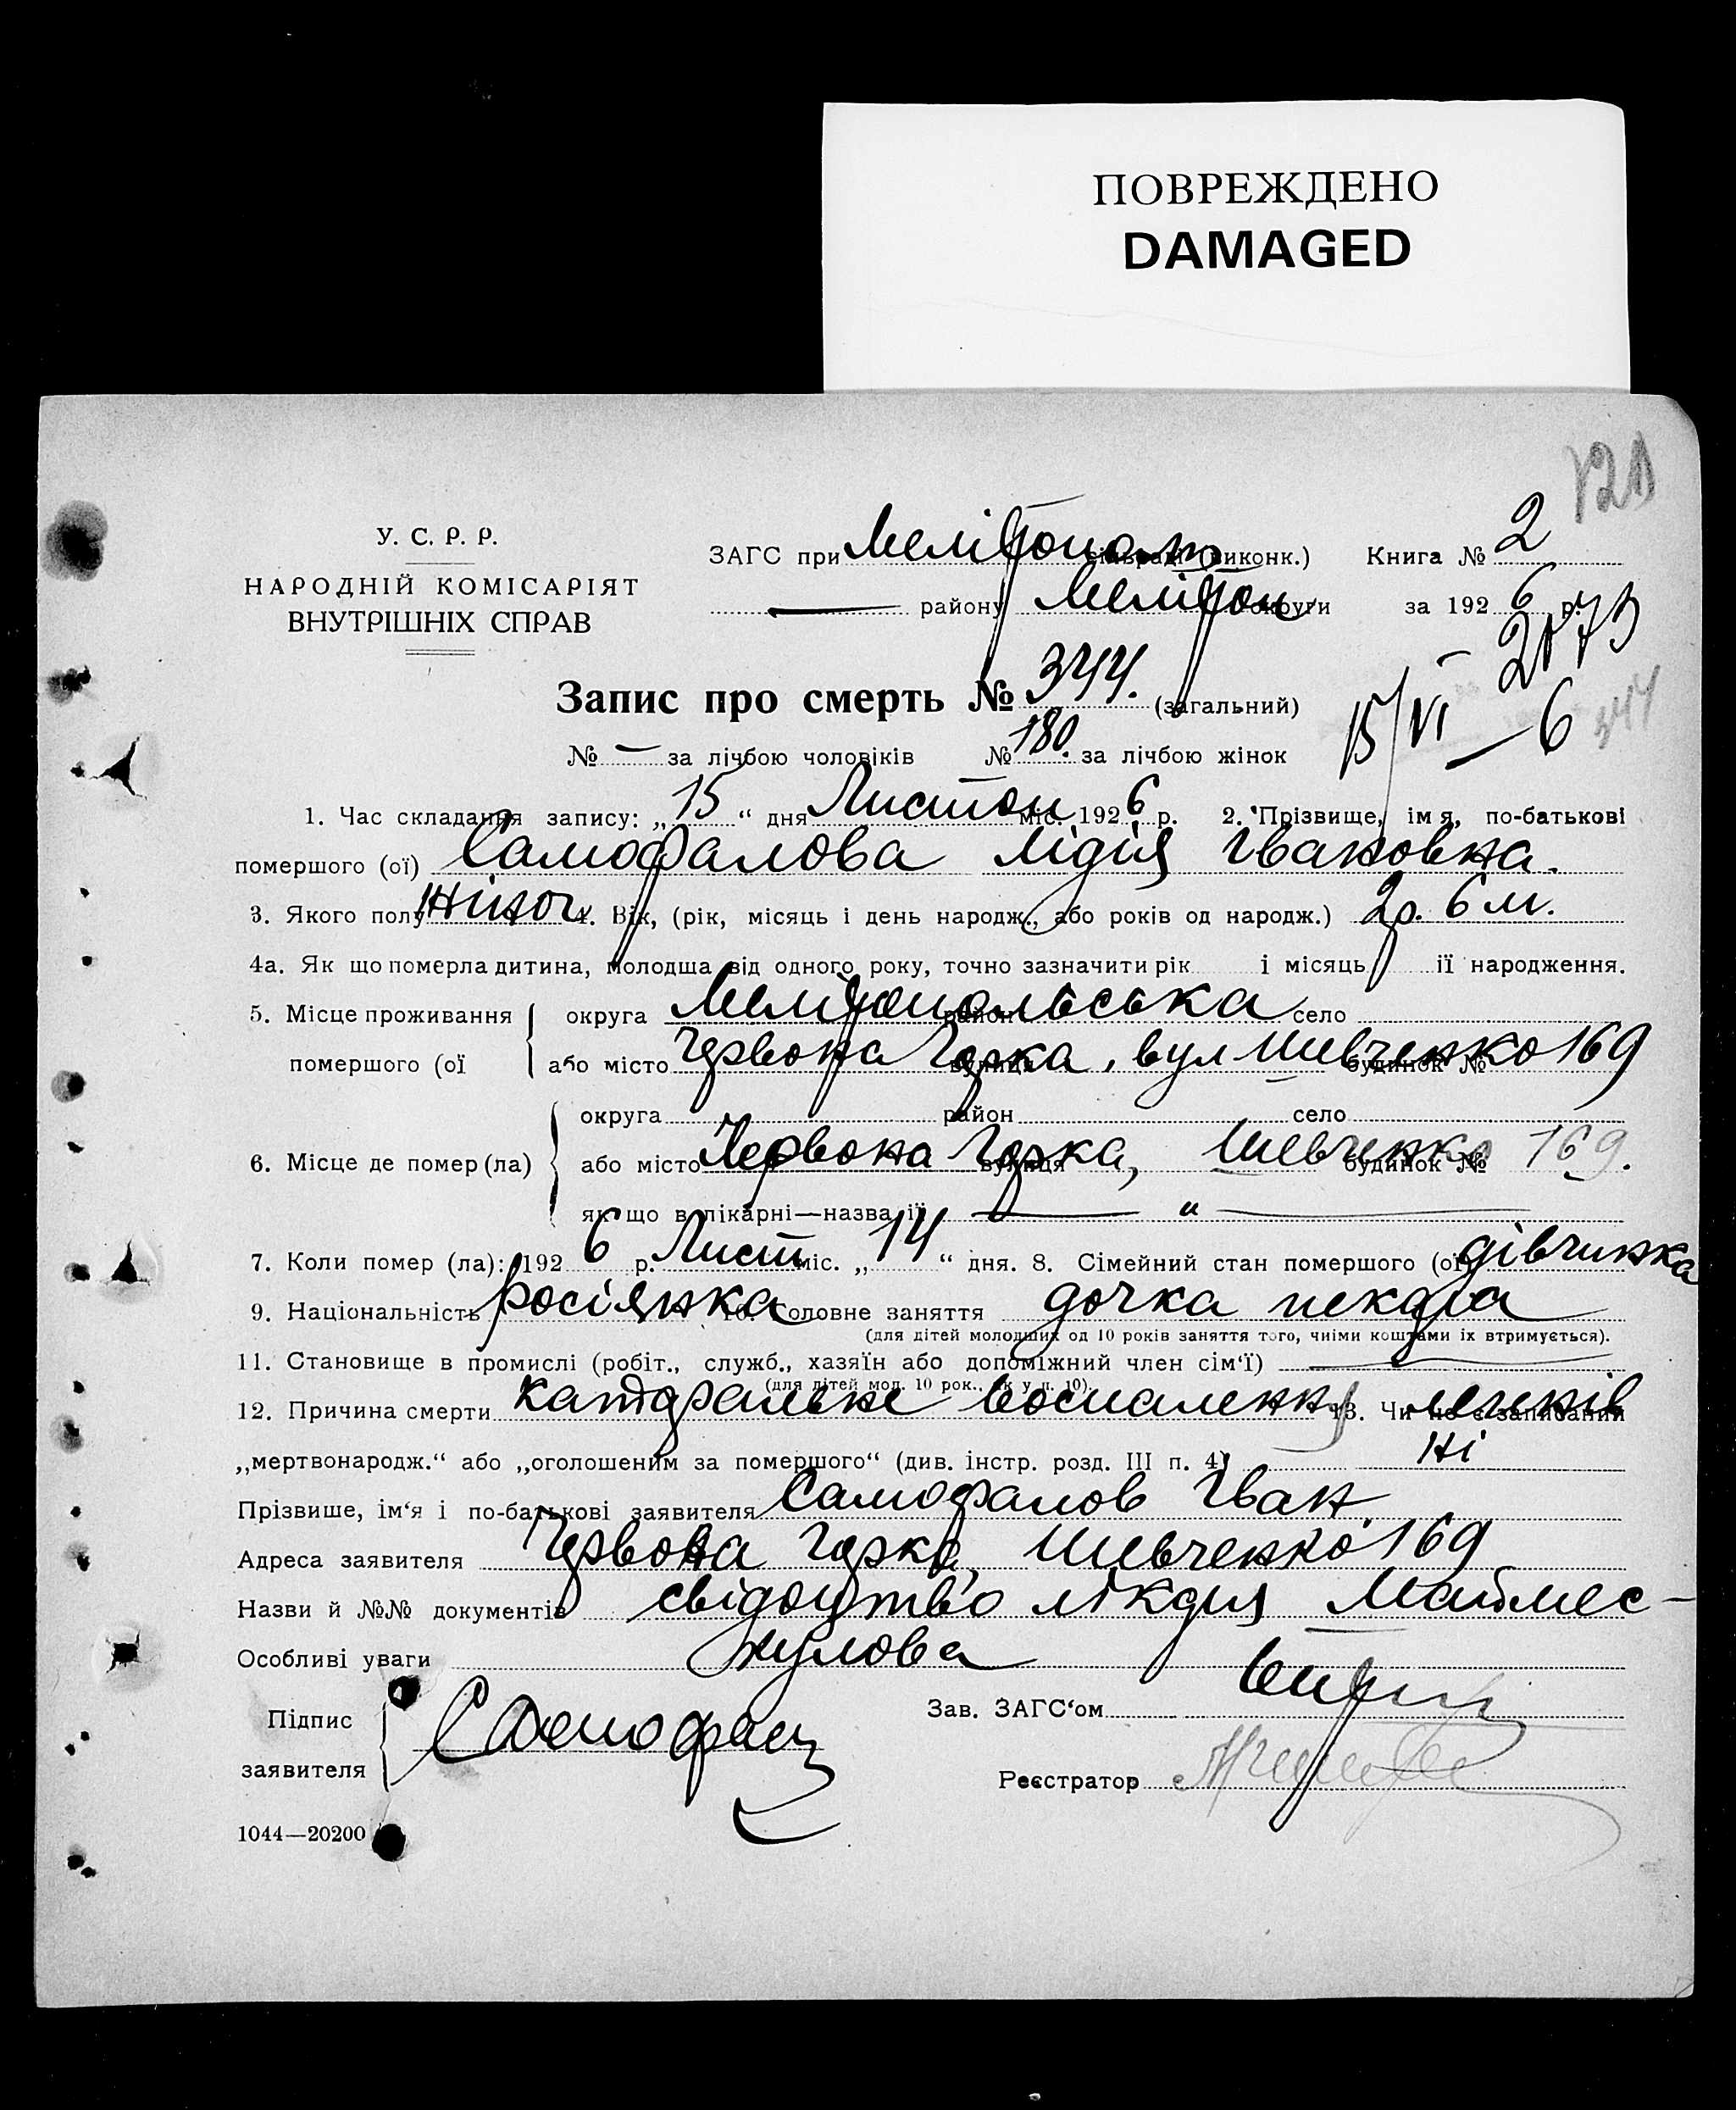 ПОВРЕЖДЕНО
DAMAGED
121
У. С. Р. Р.
НАРОДНІЙ КОМІСАРІЯТ
ВНУТРІШНІХ СПРАВ
ЗАГС при Мелітопол сільраді (виконк.) Книга № 2
— району Мелітоп округи за 1926 р.
Запис про смерть № 344. (загальний)
15/VI — 6
344
№ — за лічбою чоловіків № 180. за лічбою жінок
1. Час складання запису: „15“ дня Листоп міс. 1926 р. 2. Прізвище, імя, по-батькові
помершого (ої) Самофалова Лідія Івановна.
3. Якого полу жіноч 4. Вік, (рік, місяць і день народж., або років од народж.) 2р. 6 м.
4а. Як що померла дитина, молодша від одного року, точно зазначити рік і місяць її народження.
5. Місце проживання округа Мелітопольська район село
помершого (ої або місто Червона Горка, вул Шевченко 169 вулиця будинок №
округа район село
6. Місце де помер (ла) або місто Червона Горка, вулиця Шевченко будинок № 169.
як що в лікарні—назва її — „ —
7. Коли помер (ла): 1926 р. Лист міс. „14“ дня. 8. Сімейний стан помершого (ої) дівчинка
9. Національність росіянка 10. Головне заняття дочка пекаря
(для дітей молодших од 10 років заняття того, чиїми коштами їх втримується).
11. Становище в промислі (робіт., служб., хазяїн або допоміжний член сім‘ї) —
(для дітей мол. 10 рок., як у п. 10).
12. Причина смерти катаральне воспалення легенів 13. Чи не є записаний
„мертвонародж.“ або „оголошеним за помершого“ (див. інстр. розд. III п. 4) Ні
Прізвише, ім‘я і по-батькові заявителя Самофалов Іван
Адреса заявителя Червона Горка, Шевченко 169
Назви й №№ документів свідоцтво лікаря
Особливі уваги
Підпис
заявителя
Зав. ЗАГС‘ом
Реєстратор
1044—20200